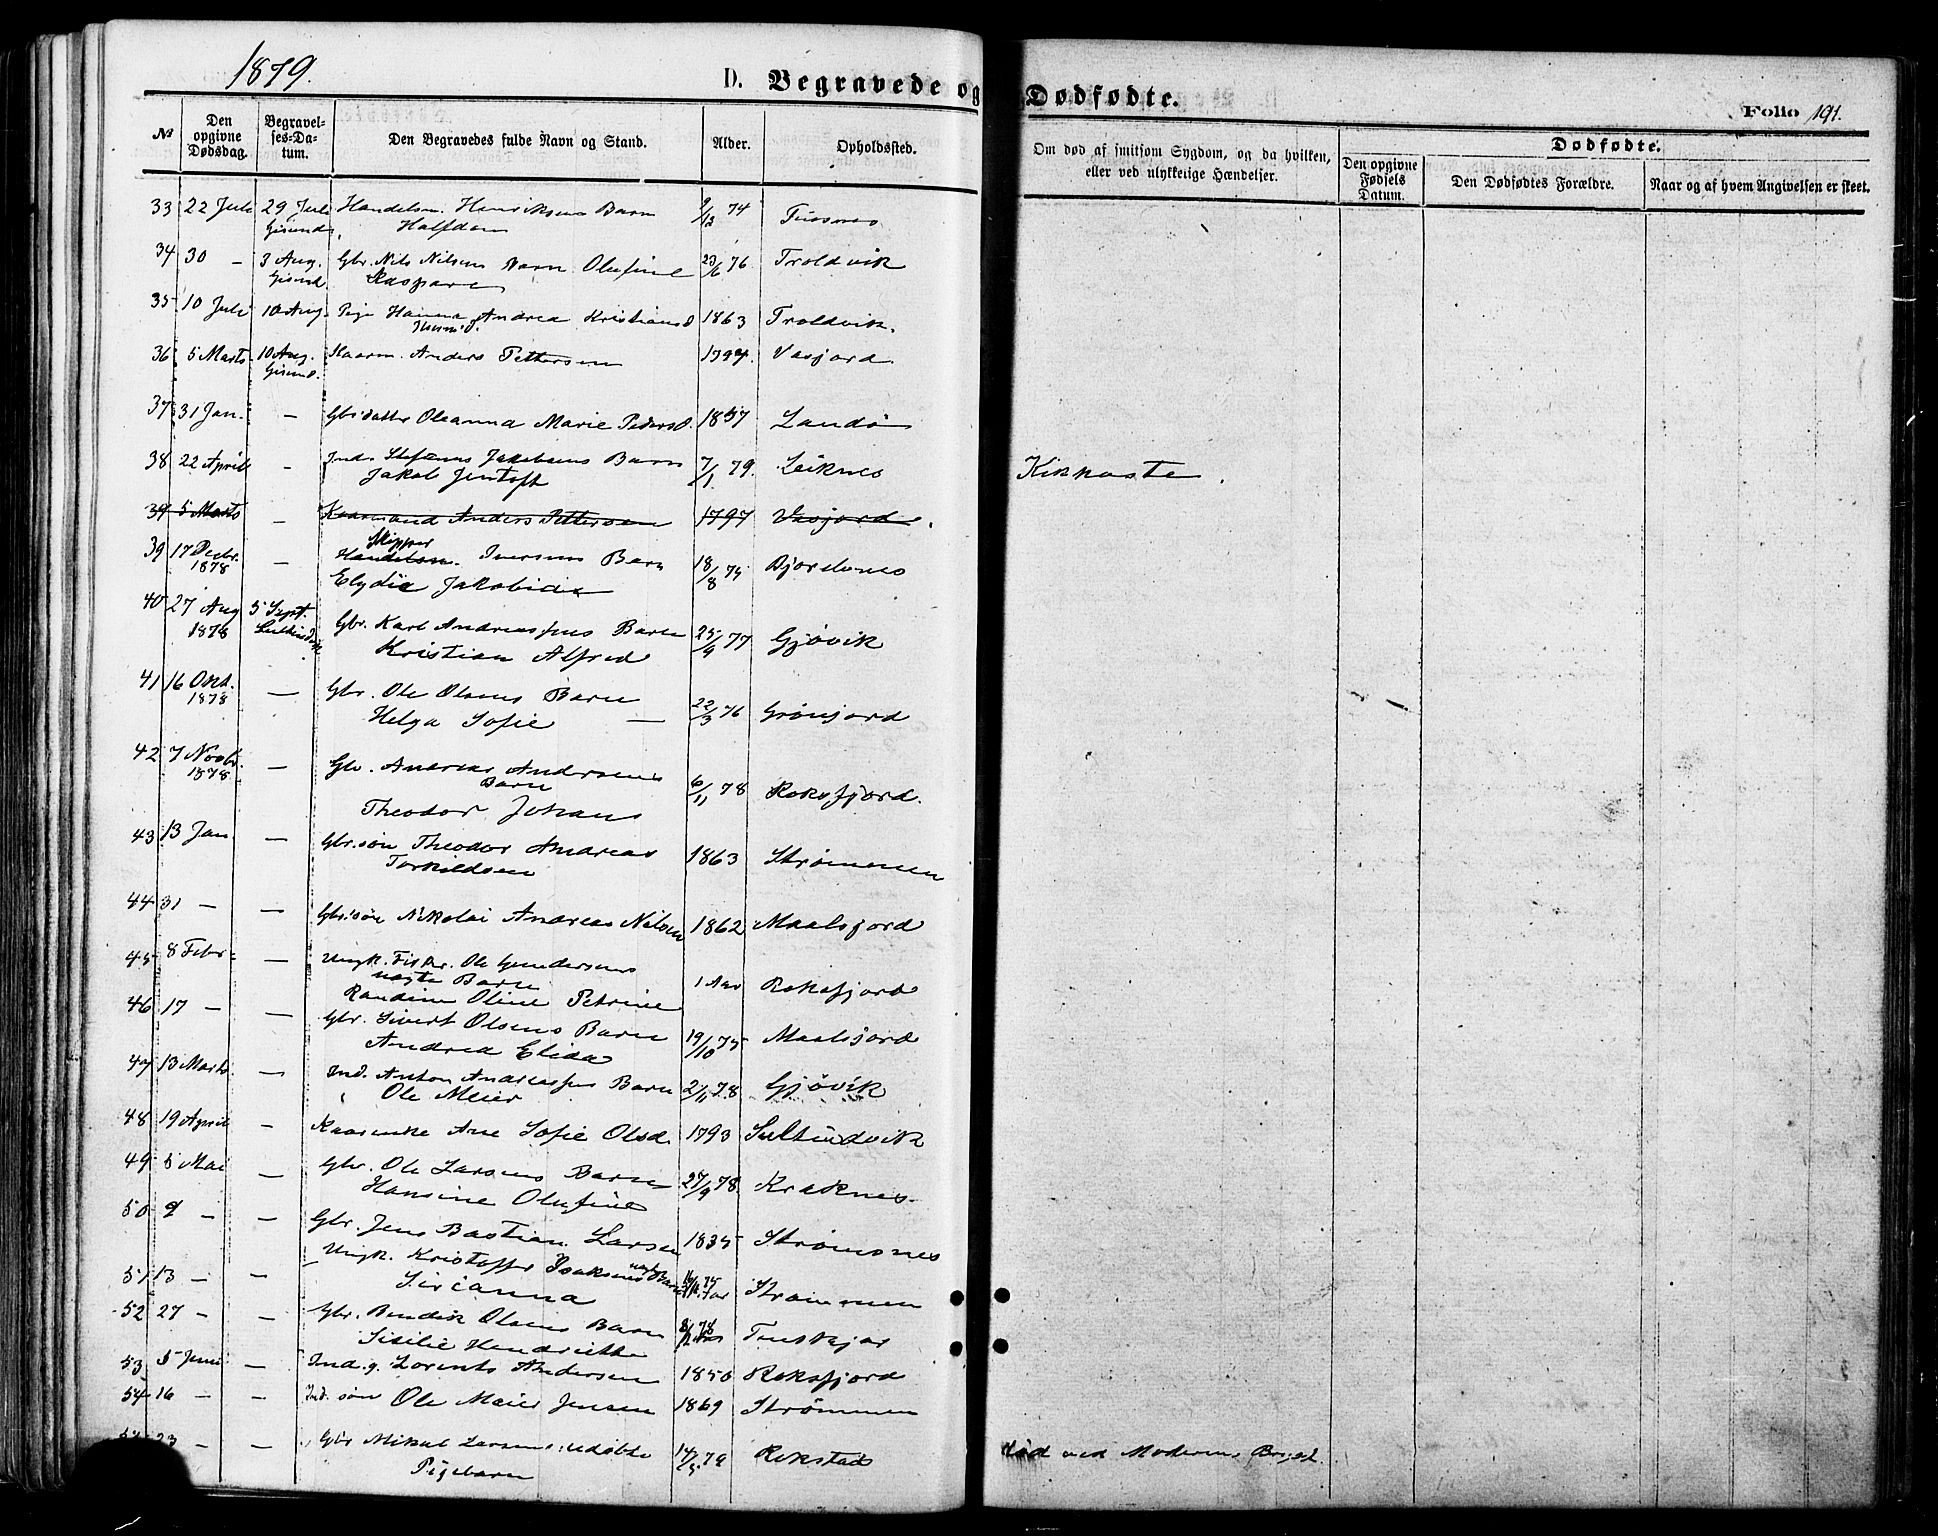 1879.
D. Begravede og Dødfødte.
Folio 191.
№
Den opgivne Dødsdag.
Begravelses-Datum.
Den Begravedes fulde Navn og Stand.
Alder.
Opholdssted.
Om død af smitsom Sygdom, og da hvilken, eller ved ulykkelige Hændelser.
Dødfødte.
Den opgivne Fødsels Datum.
Den Dødfødtes Forældre.
Naar og af hvem Angivelsen er skeet.
33 22 Juli 29 Juli Handelsm. Henriksens Barn 74
Gisund Halfdan
34 30 - 3 Aug. Gbr. Nils Nilsens Barn Olufine 23/6 76 Troldvik
Gisund Kaspara
35 10 Juli 10 Aug Pige Hanna Andrea Kristiansd 1863 Troldvik.
36 5 Marts 10 Aug. Kaarm. Anders Pettersen 1797. Vasjord
Gisund.
37 31 Jan. - Gbrdatter Oleanna Marie Pedersd. 1857 Landø
38 22 April - Ind. Jakobsens Barn 7/1 79. Leiknes Kikhoste.
Jakob Jentoft
39 5 Marts - Kaarmand Anders Pettersen 1797 Vasjord.
Skipper
39 17 Decbr. - Handelsm. Iversens Barn 18/8 75 Bjorelvnes
1878 Elydie Jakobide
40 27 Aug 5 Sept. Gbr. Karl Andreassens Barn 77 Gjøvik
1878 Kristian Alfred
41 16 Okt. - Gbr. Ole Olsens Barn 22/3 76 Grønjord
1878 Helga Sofie -
42 7 Novbr. - Gbr. Andreas Andersens 6/11 78 Roksfjord.
1878 Barn
Theodor Johans
43 13 Jan - Gbr.søn Theodor Andreas 1863 Strømmen
Torkildsen
44 31 - - Gbr.søn Nikolai Andreas Nilsen 1862 Maalsjord
45 8 Febr - Ungk. Fisker. Ole Gundersens 1 Aar Roksfjord
uægte Barn
Randine Oline Petrine
46 17 - - Gbr. Sivert Olsens Barn 19/10 75 Maalsjord
Andrea Elida
47 13 Marts. - Ind. Anton Andreassens Barn 2/11 78 Gjøvik
Ole Meier
48 19 April - Kaarenke Ane Sofie Olsd. 1793 Sultindvik
49 5 Mai - Gbr. Ole Larsens Barn 27/9 78. Kraknes.
Hansine Olufine
50 9 - - Gbr. Jens Bastian Larsen 1835 Strømsnes
51 13 - - Ungk. Kristoffer Isaksens uægte Barn 75 Strømmen
Sirianna
52 27 - Gbr. Bendik Olsens Barn 78 Tenskjær
Sisilie Hendriette
53 5 Juni - Ind.g. Lorents Andersen 1850 Roksfjord
54 16 - - Ind. søn Ole Meier Jensen 1869 Strømmen
23 - - Gbr Mikal Larsens udøbte 79 Rokstad død ved Moderens Bryst.
Pigebarn